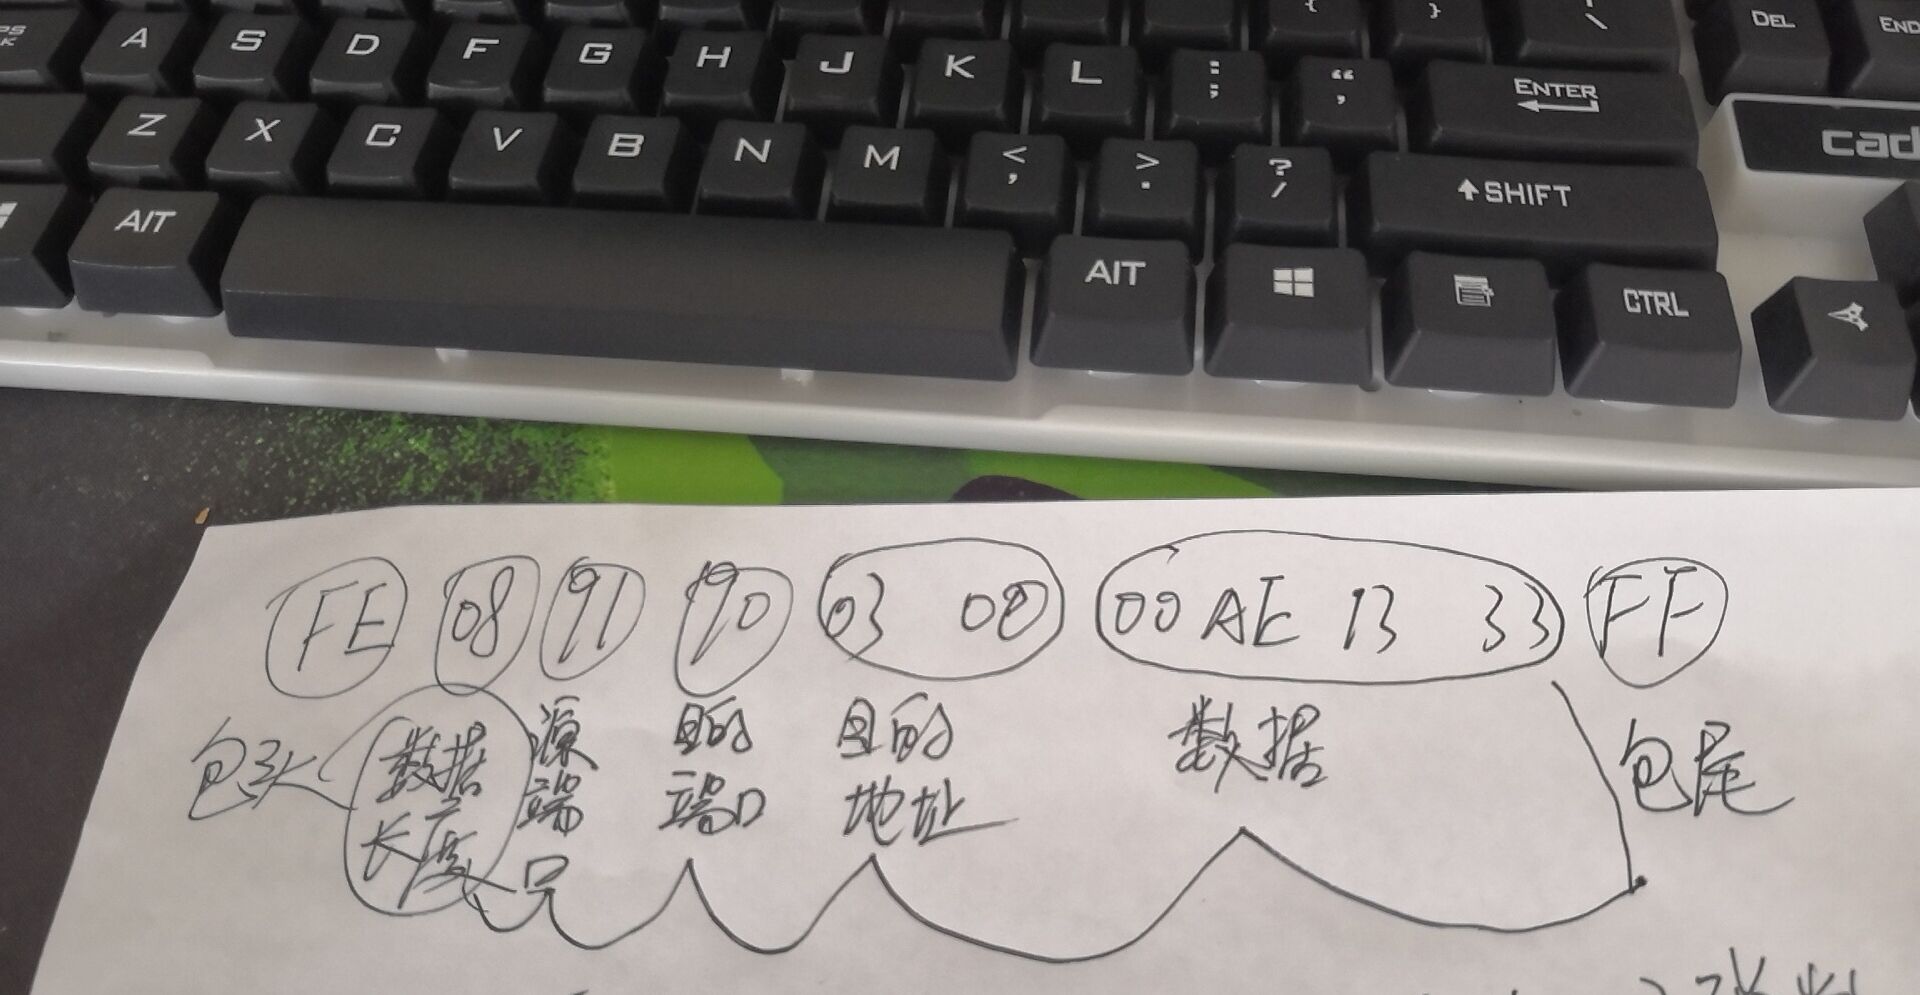 A S D F G H J K L : ; “ , ENTER
DEL END
Z X C V B N M < , > . ? / SHIFT
cad
AIT AIT CTRL
FE 08 91 90 03 00 00 AE 13 33 FF
包头 数据长度 源端口 目的端口 目的地址 数据 包尾